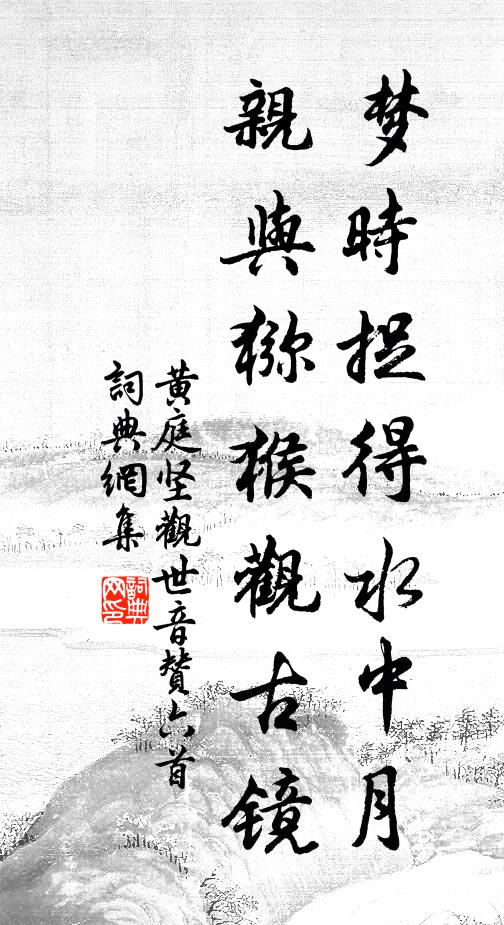 梦時捉得水中月
親與獼猴觀古鏡
黃庭坚觀世音贊六首
詞典網集
詞典
网印